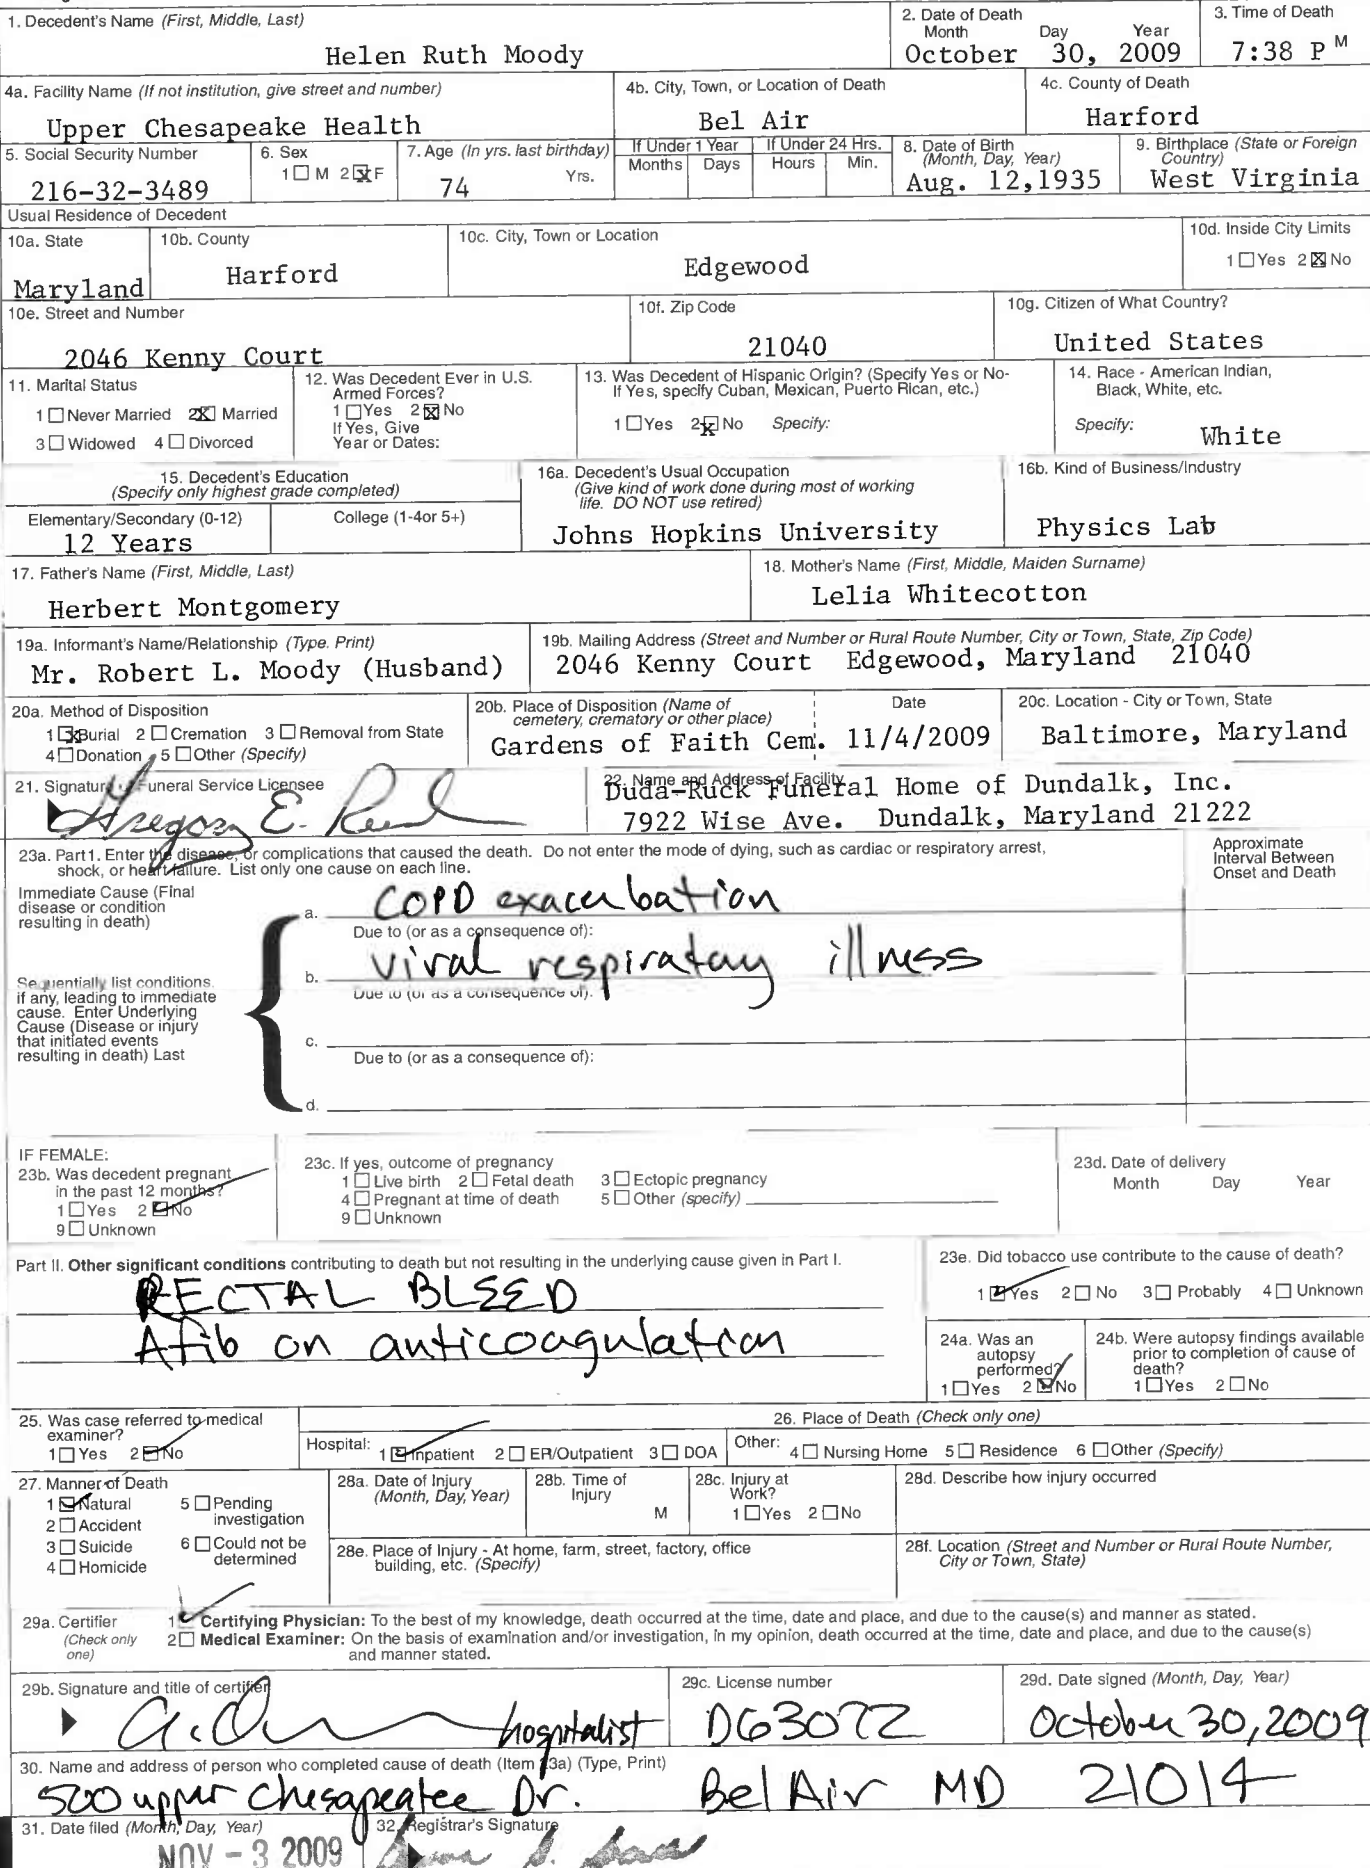 1. Decedent's Name (First, Middle, Last)
Helen Ruth Moody
2. Date of Death
Month Day Year
October 30, 2009
3. Time of Death
7:38 P M
4a. Facility Name (If not institution, give street and number)
Upper Chesapeake Health
4b. City, Town, or Location of Death
Bel Air
4c. County of Death
Harford
5. Social Security Number
216-32-3489
6. Sex
1 M 2 F
7. Age (In yrs. last birthday)
74 Yrs.
If Under 1 Year
Months Days
If Under 24 Hrs.
Hours Min.
8. Date of Birth
(Month, Day, Year)
Aug. 12,1935
9. Birthplace (State or Foreign
Country)
West Virginia
Usual Residence of Decedent
10a. State
Maryland
10b. County
Harford
10c. City, Town or Location
Edgewood
10d. Inside City Limits
1 Yes 2 No
10e. Street and Number
2046 Kenny Court
10f. Zip Code
21040
10g. Citizen of What Country?
United States
11. Marital Status
1 Never Married 2 Married
3 Widowed 4 Divorced
12. Was Decedent Ever in U.S.
Armed Forces?
1 Yes 2 No
If Yes, Give
Year or Dates:
13. Was Decedent of Hispanic Origin? (Specify Yes or No-
If Yes, specify Cuban, Mexican, Puerto Rican, etc.)
1 Yes 2 No Specify:
14. Race - American Indian,
Black, White, etc.
Specify: White
15. Decedent's Education
(Specify only highest grade completed)
Elementary/Secondary (0-12)
12 Years
College (1-4or 5+)
16a. Decedent's Usual Occupation
(Give kind of work done during most of working
life. DO NOT use retired)
Johns Hopkins University
16b. Kind of Business/Industry
Physics Lab
17. Father's Name (First, Middle, Last)
Herbert Montgomery
18. Mother's Name (First, Middle, Maiden Surname)
Lelia Whitecotton
19a. Informant's Name/Relationship (Type. Print)
Mr. Robert L. Moody (Husband)
19b. Mailing Address (Street and Number or Rural Route Number, City or Town, State, Zip Code)
2046 Kenny Court Edgewood, Maryland 21040
20a. Method of Disposition
1 Burial 2 Cremation 3 Removal from State
4 Donation 5 Other (Specify)
20b. Place of Disposition (Name of
cemetery, crematory or other place)
Gardens of Faith Cem.
Date
11/4/2009
20c. Location - City or Town, State
Baltimore, Maryland
21. Signature Funeral Service Licensee
Gregory E.
22. Name and Address of Facility
Duda-Ruck Funeral Home of Dundalk, Inc.
7922 Wise Ave. Dundalk, Maryland 21222
23a. Part1. Enter the disease, or complications that caused the death. Do not enter the mode of dying, such as cardiac or respiratory arrest,
shock, or heart failure. List only one cause on each line.
Approximate
Interval Between
Onset and Death
Immediate Cause (Final
disease or condition
resulting in death)
a. COPD exacerbation
Due to (or as a consequence of):
b. viral respiratory illness
Due to (or as a consequence of):
Sequentially list conditions,
if any, leading to immediate
cause. Enter Underlying
Cause (Disease or injury
that initiated events
resulting in death) Last
c.
Due to (or as a consequence of):
d.
IF FEMALE:
23b. Was decedent pregnant
in the past 12 months?
1 Yes 2 No
9 Unknown
23c. If yes, outcome of pregnancy
1 Live birth 2 Fetal death 3 Ectopic pregnancy
4 Pregnant at time of death 5 Other (specify)
9 Unknown
23d. Date of delivery
Month Day Year
Part II. Other significant conditions contributing to death but not resulting in the underlying cause given in Part I.
RECTAL BLEED
Afib on anticoagulation
23e. Did tobacco use contribute to the cause of death?
1 Yes 2 No 3 Probably 4 Unknown
24a. Was an
autopsy
performed?
1 Yes 2 No
24b. Were autopsy findings available
prior to completion of cause of
death?
1 Yes 2 No
25. Was case referred to medical
examiner?
1 Yes 2 No
26. Place of Death (Check only one)
Hospital: 1 Inpatient 2 ER/Outpatient 3 DOA
Other: 4 Nursing Home 5 Residence 6 Other (Specify)
27. Manner of Death
1 Natural 5 Pending
investigation
2 Accident
3 Suicide 6 Could not be
determined
4 Homicide
28a. Date of Injury
(Month, Day, Year)
28b. Time of
Injury
M
28c. Injury at
Work?
1 Yes 2 No
28d. Describe how injury occurred
28e. Place of Injury - At home, farm, street, factory, office
building, etc. (Specify)
28f. Location (Street and Number or Rural Route Number,
City or Town, State)
29a. Certifier
(Check only
one)
1 Certifying Physician: To the best of my knowledge, death occurred at the time, date and place, and due to the cause(s) and manner as stated.
2 Medical Examiner: On the basis of examination and/or investigation, in my opinion, death occurred at the time, date and place, and due to the cause(s)
and manner stated.
29b. Signature and title of certifier
hospitalist
29c. License number
D63072
29d. Date signed (Month, Day, Year)
October 30, 2009
30. Name and address of person who completed cause of death (Item 23a) (Type, Print)
500 upper Chesapeake Dr. Bel Air MD 21014
31. Date filed (Month, Day, Year)
NOV - 3 2009
32. Registrar's Signature